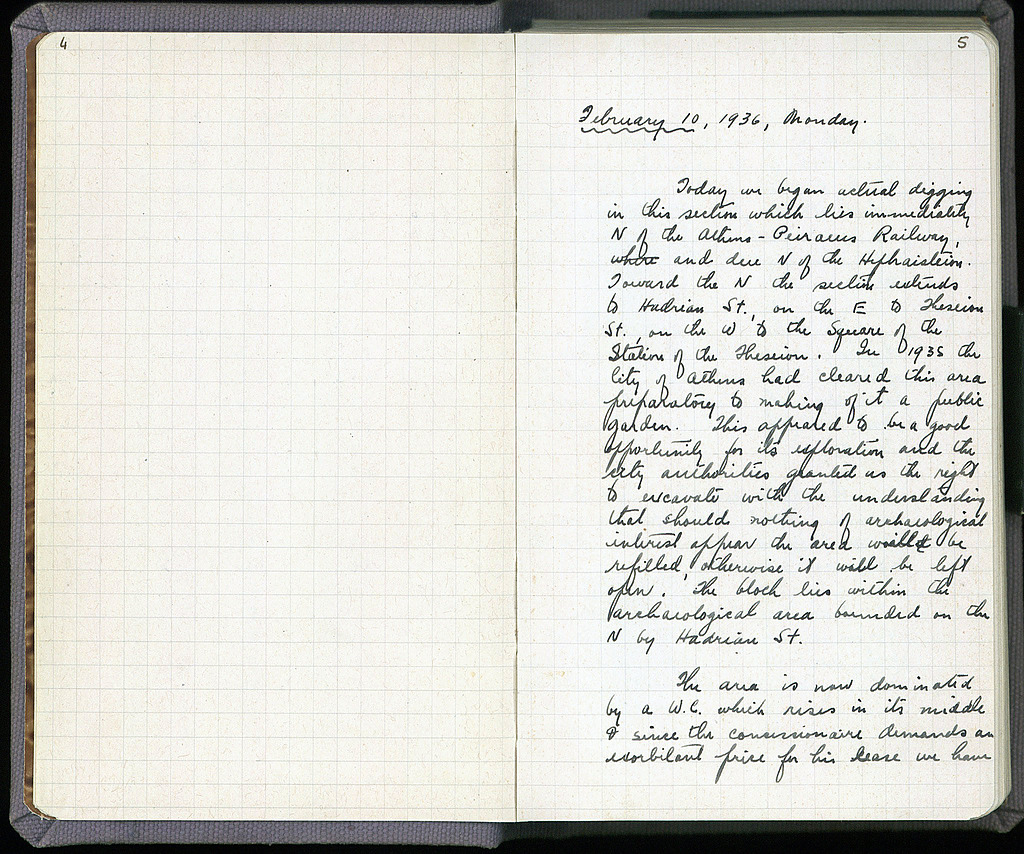 4
5
February 10, 1936, Monday.
Today we began actual digging
in this section which lies immediately
N of the Athens - Peiraeus Railway,
where and due N of the Hephaisteion.
Toward the N the section extends
to Hadrian St., on the E to Theseion
St., on the W to the Square of the
Station of the Theseion. In 1935 the
City of Athens had cleared this area
preparatory to making of it a public
garden. This appeared to be a good
opportunity for its exploration and the
city authorities granted us the right
to excavate with the understanding
that should nothing of archaeological
interest appear the area would be
refilled, otherwise it will be left
open. The block lies within the
archaeological area bounded on the
N by Hadrian St.
The area is now dominated
by a W.C. which rises in its middle
& since the concessionaire demands an
exorbitant price for his lease we have